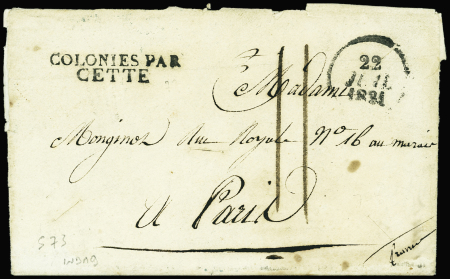 COLONIES PAR
CETTE
22
JUIL
1831
Madame
Monginot Rue Royale N° 16 au marais
A Paris
573